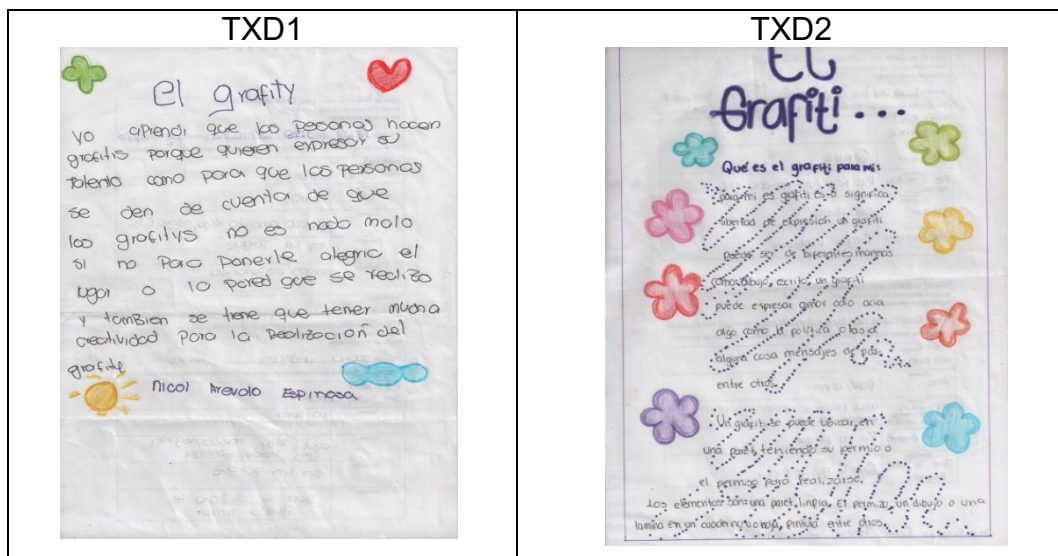 TXD1
El grafity
yo aprendi que las personas hacen
grafitis porque quieren expresar su
talento como para que las personas
se den de cuenta de que
los grafitys no es nada malo
si no para ponerle alegria el
lugar o la pared que se realizo
y tambien se tiene que tener mucha
creatividad para la Realización del
grafite
Nicol Arevalo Espinosa
TXD2
El
Grafiti...
Qué es el grafiti para mi:
para mi es grafiti es o significa
libertad de expresión un grafiti
puede ser de diferentes maneras
como dibujo, escrito, un grafiti
puede expresar amor odio acia
algo como la politica o lasia
alguna cosa mensajes de pas,
entre otros.
Un grafiti se puede ubicar en
una paret, teniendo su permio o
el permiso para realizarse.
Los elementos son: una paret limpia, El permizo, un dibujo o una
lamina en un cuaderno o hoja, pintura entre otros.